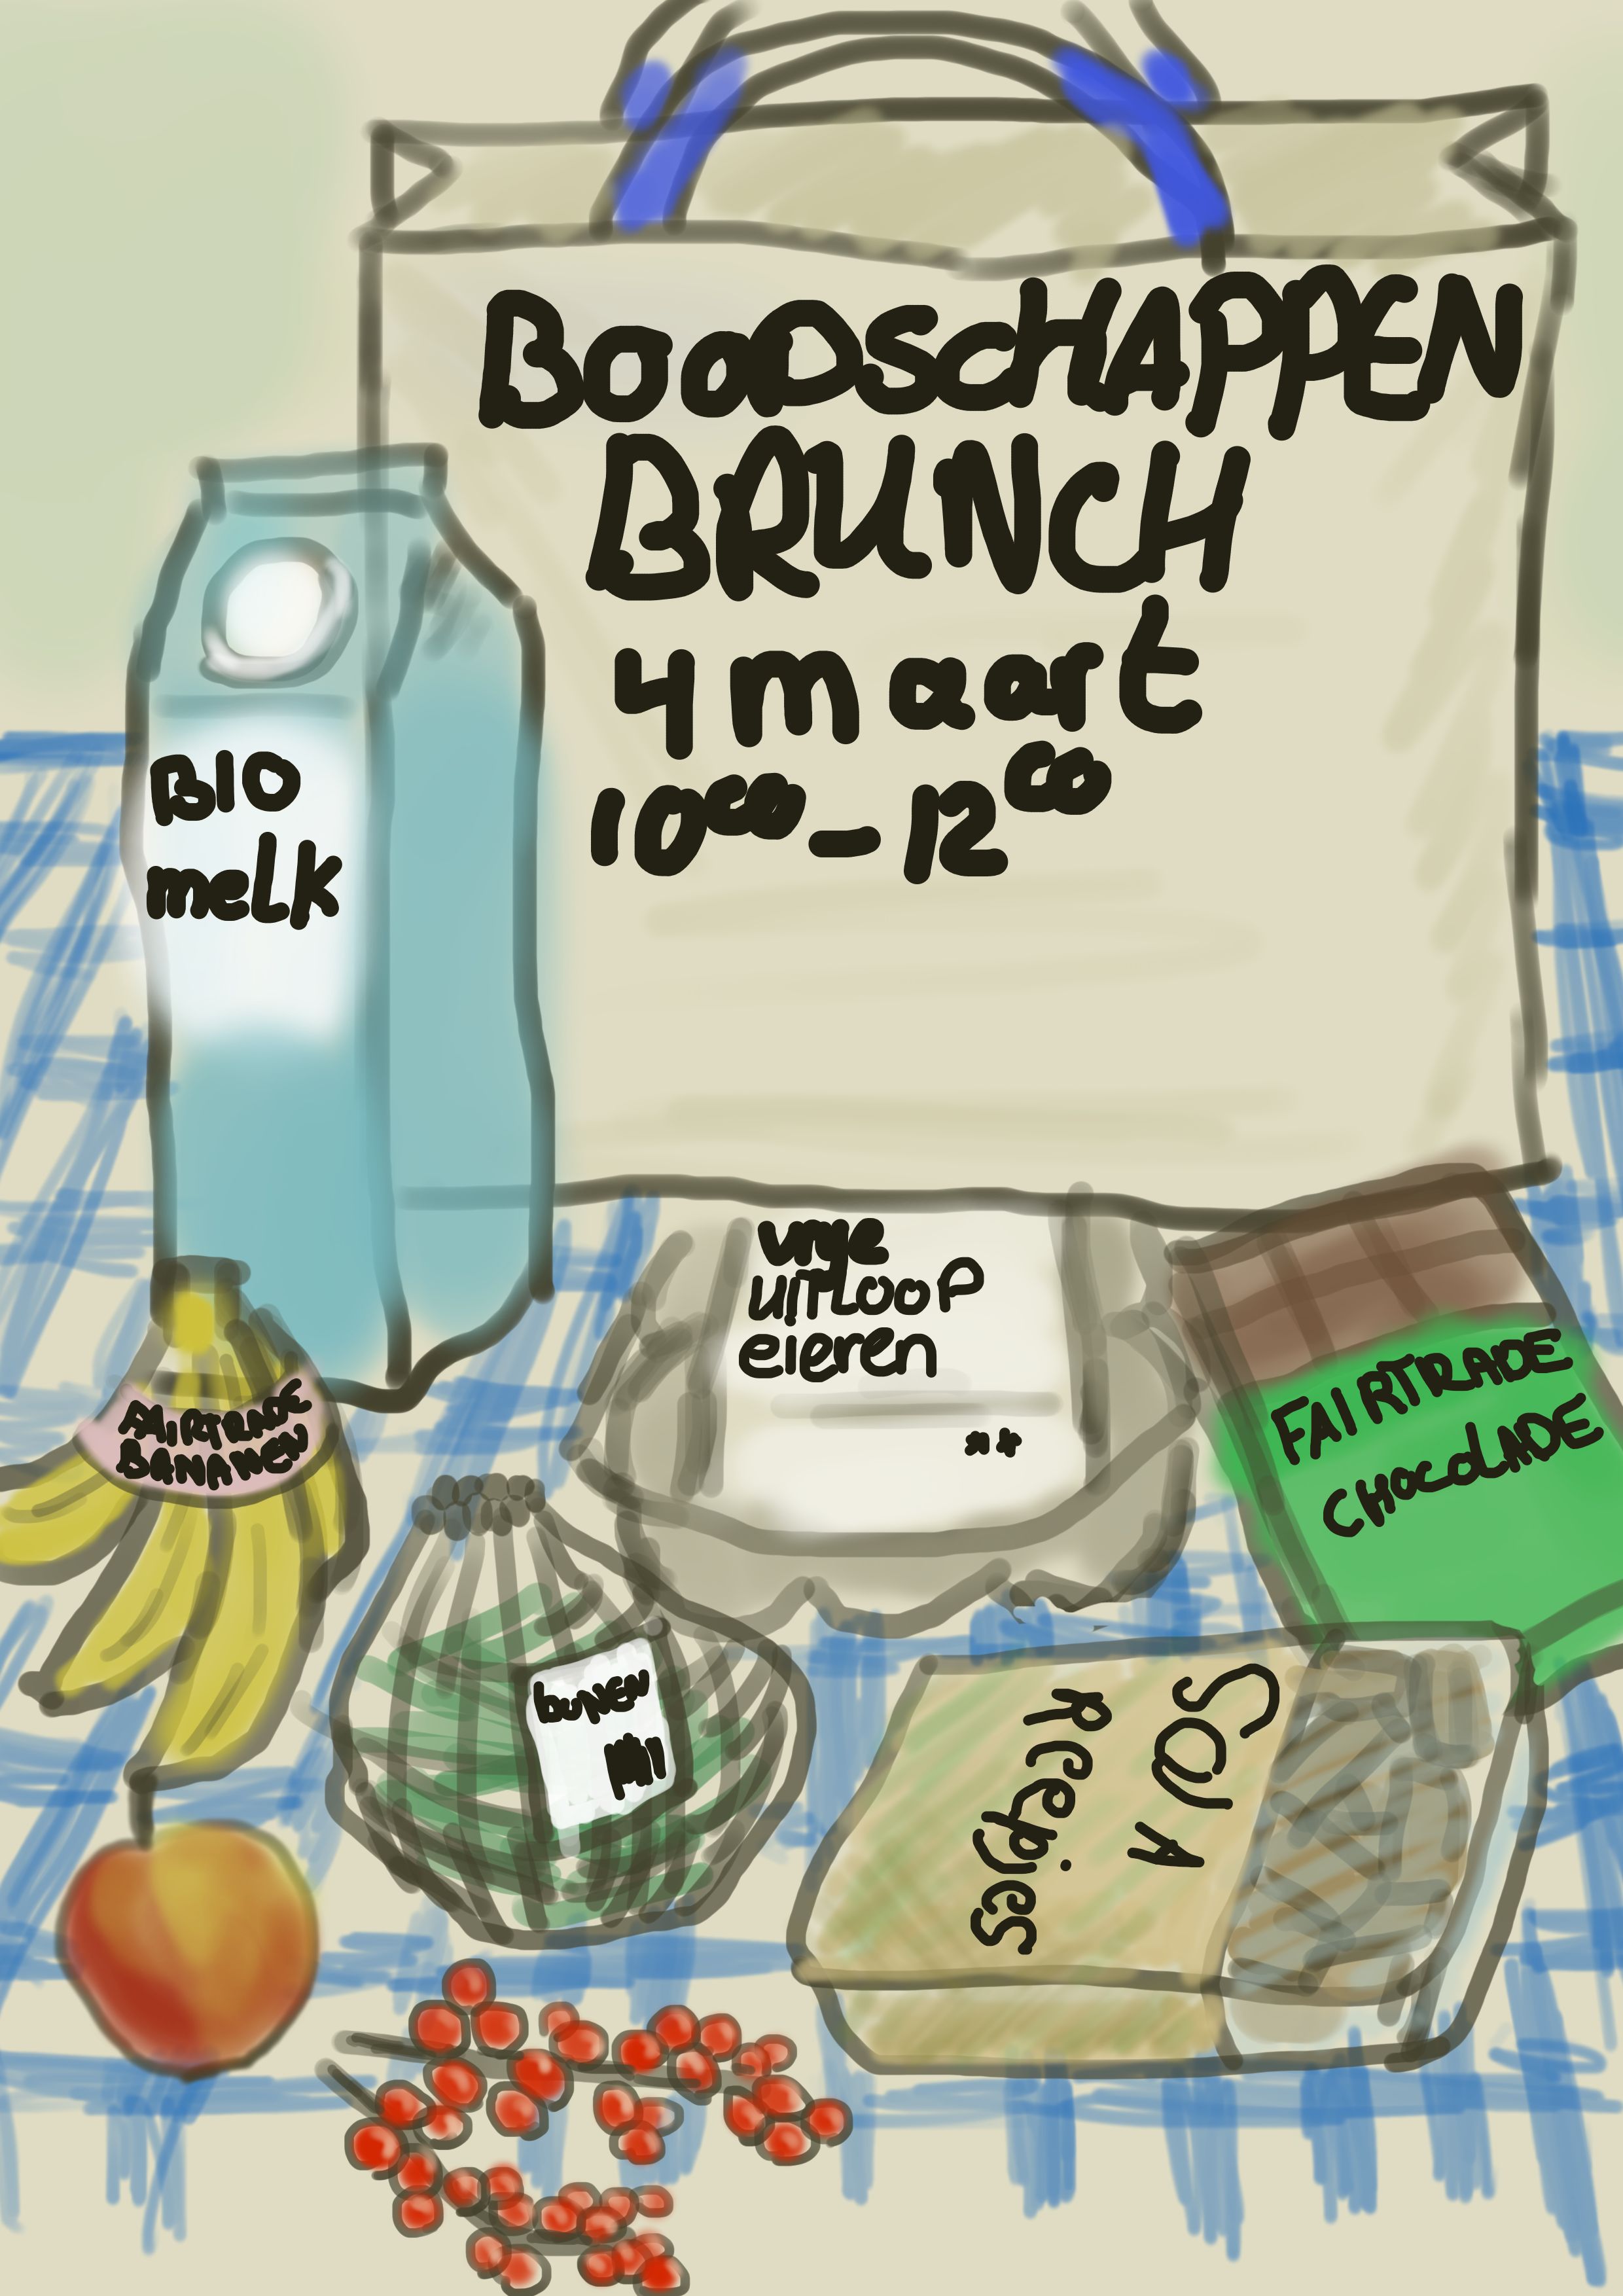 BOODSCHAPPEN
BRUNCH
4 maart
10⁰⁰-12⁰⁰
BIO
melk
vrije
UITLOOP
eieren
**
FAIRTRADE
CHOCOLADE
FAIRTRADE
BANANEN
SOJA
Reepjes